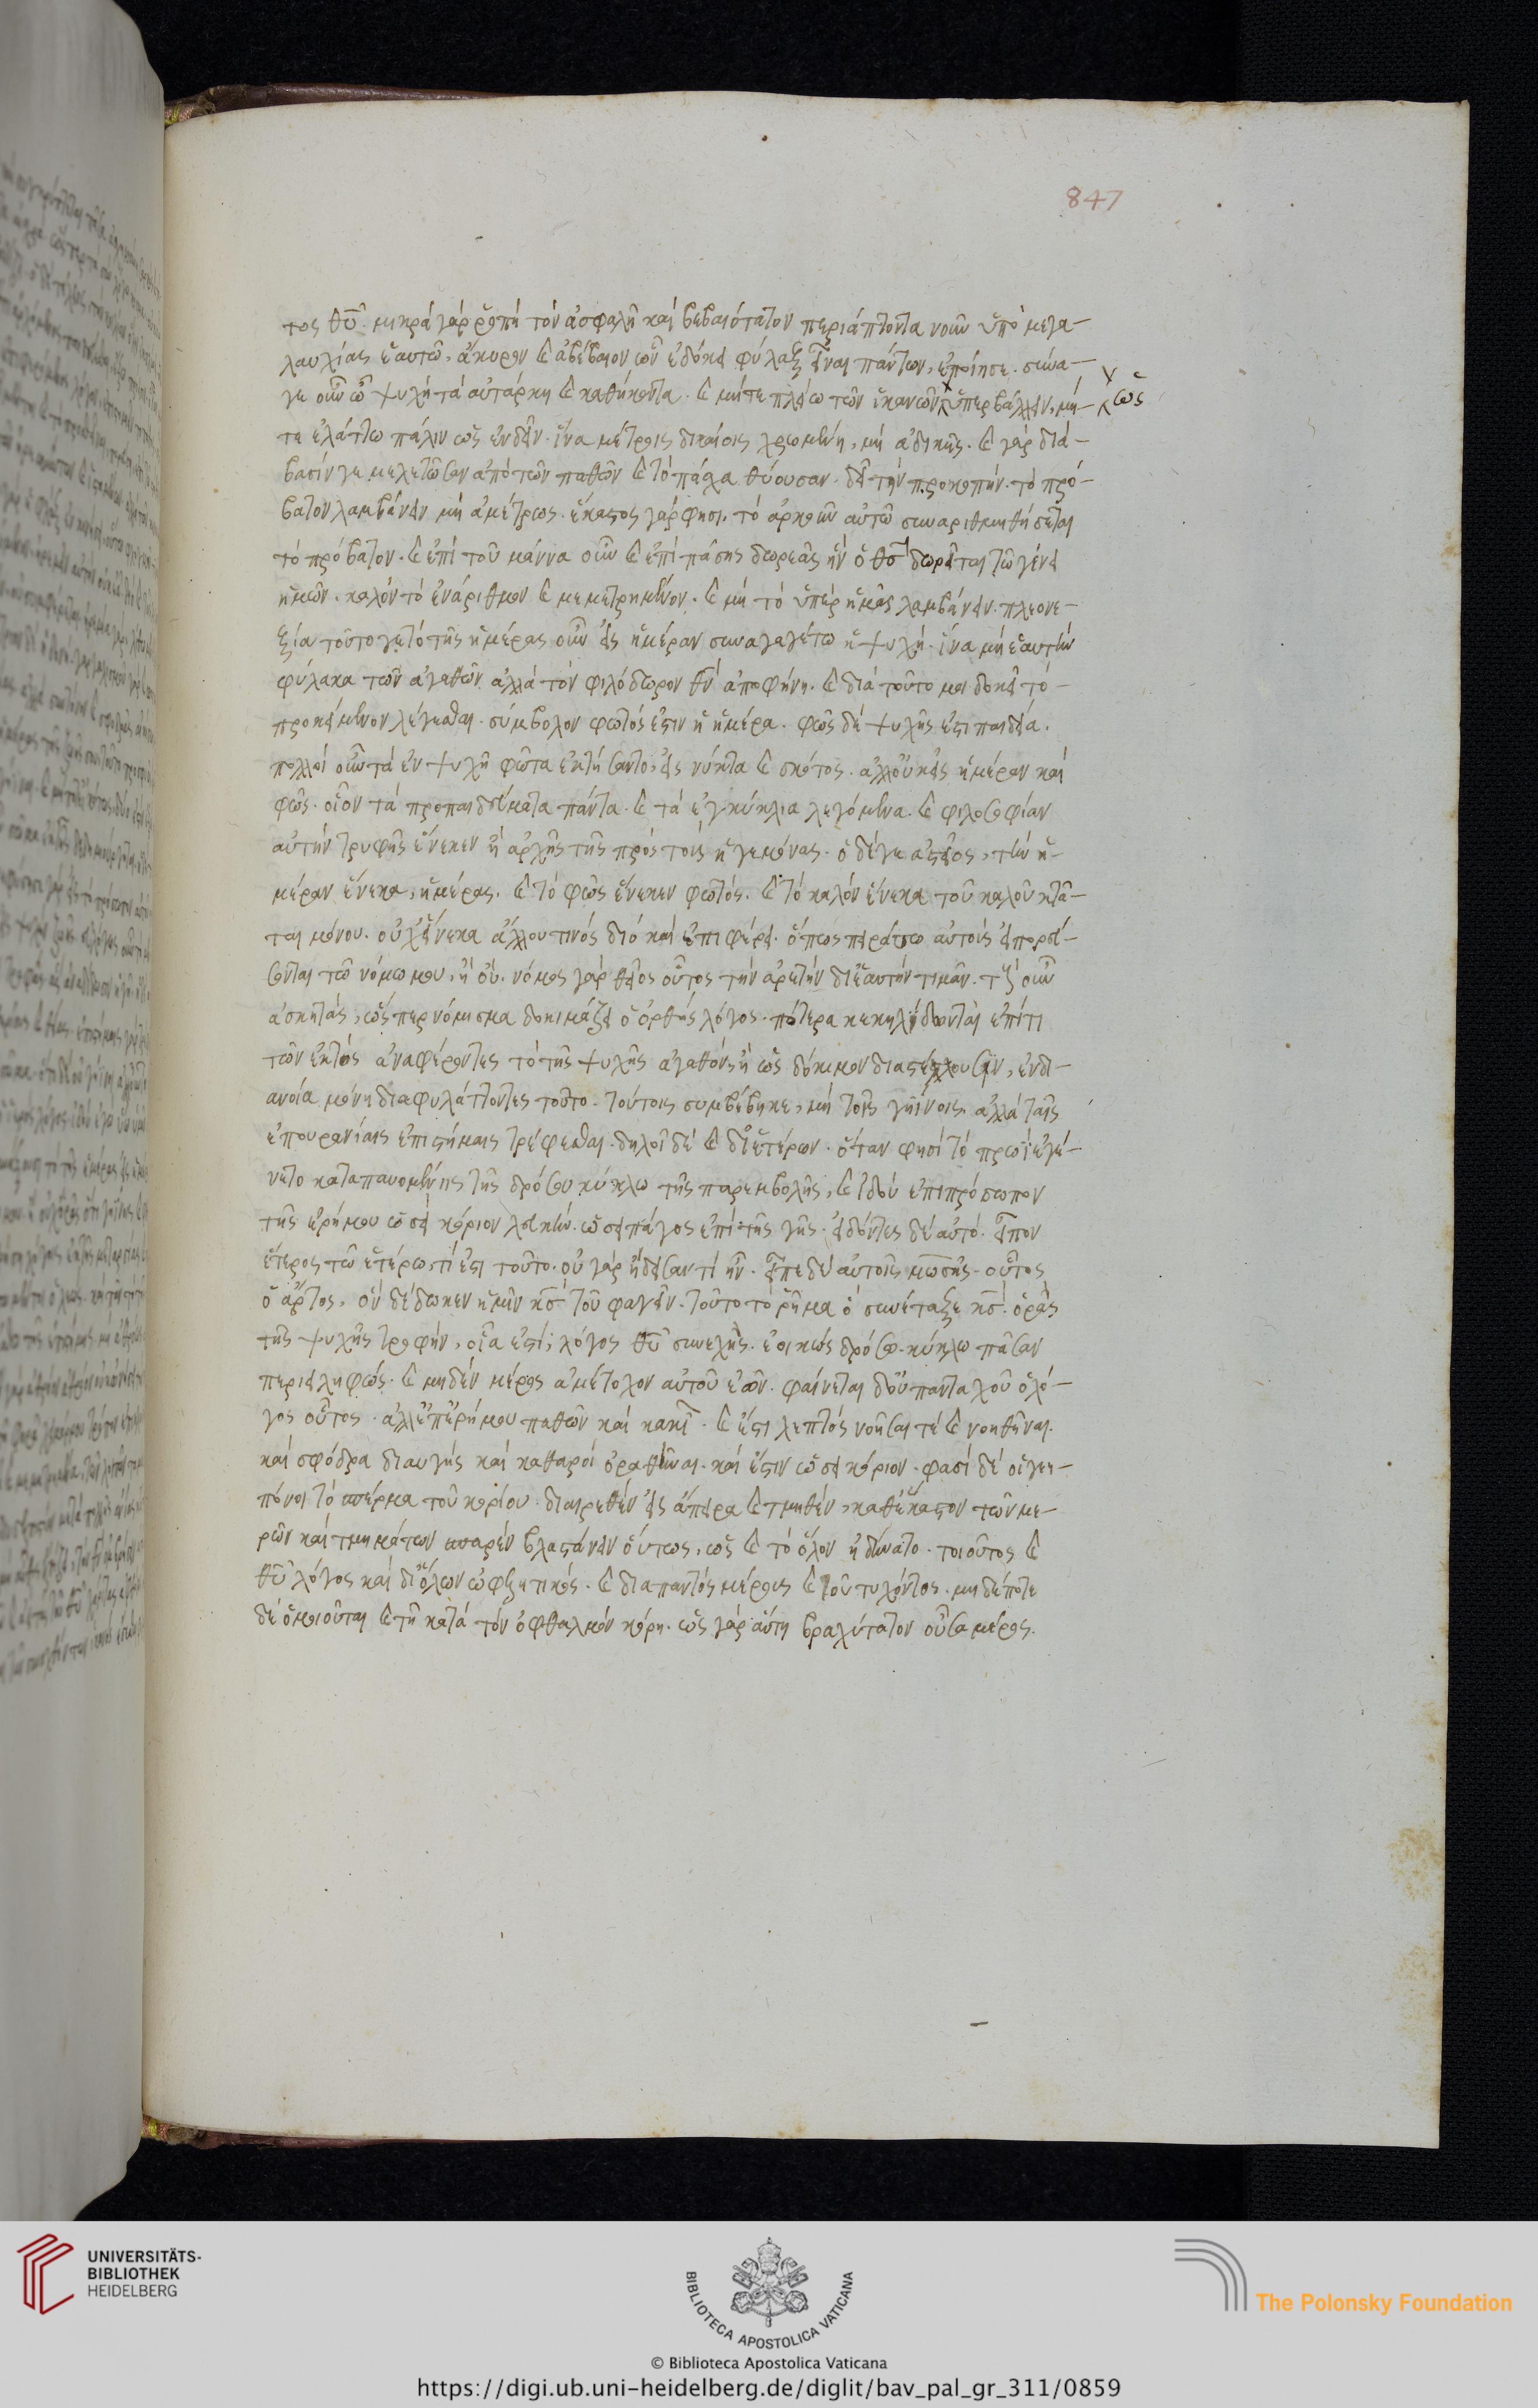 847
τος θυ̅. μικρά γάρ ῥοπή τόν ἀσφαλῆ καί βεβαιότατον περιάπτοντα νοῦν ὑπό μεγα-
λαυχίας ἑαυτῶ, ἄκυρον καί ἀβέβαιον ὧν ἐδόκει φύλαξ εἶναι πάντων, ἐποίησε. σύνα-
γε οὖν ὦ ψυχή τά αὐτάρκη καί καθήκοντα. καί μήτε πλείω τῶν ἱκανῶν ὑπερβάλλειν, μή-
ὡς
τε ἐλάττω πάλιν ὡς ἐνδεῖν. ἵνα μέτροις δικαίοις χρωμένη, μή ἀδικῆς. καί γάρ διά-
βασίν γε μελετῶσαν ἀπό τῶν παθῶν καί τό πάσχα θύουσαν. δεῖ τήν προκοπήν. τό πρό-
βατον λαμβάνειν μή ἀμέτρως. ἕκαστος γάρ φησι, τό ἀρκοῦν αὐτῶ συναριθμηθήσεται
τό πρόβατον. καί ἐπί τοῦ μάννα οὖν καί ἐπί πάσης δωρεᾶς ἥν ὁ θσ̅ δωρεῖται τῶ γένει
ἡμῶν. καλόν τό ἐνάριθμον καί μεμετρημένον. καί μή τό ὑπέρ ἡμᾶς λαμβάνειν. πλεονε-
ξία τοῦτο γε τό τῆς ἡμέρας οὖν εἰς ἡμέραν συναγαγέτω ἡ ψυχή. ἵνα μή ἑαυτήν
φύλακα τῶν ἀγαθῶν ἀλλά τόν φιλόδωρον θν̅ ἀποφήνη. καί διά τοῦτο μοι δοκεῖ τό
προκείμενον λέγεσθαι. σύμβολον φωτός ἐστιν ἡ ἡμέρα. φῶς δέ ψυχῆς ἐστι παιδεία.
πολλοί οὖν τά ἐν ψυχῆ φῶτα ἐκτήσαντο, εἰς νύκτα καί σκότος. ἀλλ' οὐκ εἰς ἡμέραν καί
φῶς. οἷον τά προπαιδεύματα πάντα. καί τά ἐγκύκλια λεγόμενα. καί φιλοσοφίαν
αὐτήν τρυφῆς ἕνεκεν ἤ ἀρχῆς τῆς πρός τούς ἡγεμόνας. ὁ δέ γε ἀστεῖος, τήν ἡ-
μέραν ἕνεκα, ἡμέρας. καί τό φῶς ἕνεκεν φωτός. καί τό καλόν ἕνεκα τοῦ καλοῦ κτᾶ-
ται μόνου. οὐχ ἕνεκα ἄλλου τινός διό καί ἐπιφέρει. ὅπως πειράσω αὐτούς εἰ πορεύ-
σονται τῶ νόμω μου, ἤ οὐ. νόμος γάρ θεῖος οὗτος τήν ἀρετήν δι' ἑαυτήν τιμᾶν. τούς οὖν
ἀσκητάς, ὥσπερ νόμισμα δοκιμάζει ὁ ὀρθός λόγος. πότερα κεκηλίδωνται ἐπί τι
τῶν ἐκτός ἀναφέροντες τό τῆς ψυχῆς ἀγαθόν, ἤ ὡς δόκιμον διαστέλλουσιν, ἐν δι-
ανοία μόνη διαφυλάττοντες τοῦτο. τούτοις συμβέβηκε, μή τοῖς γηίνοις, ἀλλά ταῖς
ἐπουρανίαις ἐπιστήμαις τρέφεσθαι. δηλοῖ δέ καί δι' ἑτέρων. ὅταν φησί τό πρωί ἐγέ-
νετο καταπαυομένης τῆς δρόσου κύκλω τῆς παρεμβολῆς, καί ἰδού ἐπί πρόσωπον
τῆς ἐρήμου ὡσεί κόριον λευκόν. ὡσεί πάγος ἐπί τῆς γῆς. ἰδόντες δέ αὐτό. εἶπον
ἕτερος τῶ ἑτέρω, τί ἐστι τοῦτο. οὐ γάρ ἤδεισαν τί ἦν. εἶπε δέ αὐτοῖς μωσῆς. οὗτος
ὁ ἄρτος, ὅν δέδωκεν ἡμῖν κσ̅ τοῦ φαγεῖν. τοῦτο τό ῥῆμα ὅ συνέταξε κσ̅. ὁρᾶς
τῆς ψυχῆς τροφήν, οἵα ἐστί, λόγος θυ̅ συνεχής. ἐοικώς δρόσω. κύκλω πᾶσαν
περιειληφώς. καί μηδέν μέρος ἀμέτοχον αὐτοῦ ἐῶν. φαίνεται δ' οὐ πανταχοῦ ὁ λό-
γος οὗτος. ἀλλ' ἐπ' ἐρήμου παθῶν καί κακιῶν. καί ἔστι λεπτός νοῆσαί τε καί νοηθῆναι.
καί σφόδρα διαυγής καί καθαρός ὁραθῆναι. καί ἔστιν ὡσεί κόριον. φασί δέ οἱ γεη-
πόνοι τό σπέρμα τοῦ κορίου. διαιρεθέν εἰς ἄπειρα καί τμηθέν, καθ' ἕκαστον τῶν με-
ρῶν καί τμημάτων σπαρέν βλαστάνειν οὕτως, ὡς καί τό ὅλον ἠδύνατο. τοιοῦτος καί
θυ̅ λόγος καί δι' ὅλων ὠφελητικός. καί διά παντός μέρους καί τοῦ τυχόντος. μηδέποτε
δέ ὁμοιοῦται καί τῆ κατά τόν ὀφθαλμόν κόρη. ὡς γάρ αὕτη βραχύτατον οὖσα μέρος.
UNIVERSITÄTS-
BIBLIOTHEK
HEIDELBERG
BIBLIOTECA APOSTOLICA VATICANA
The Polonsky Foundation
© Biblioteca Apostolica Vaticana
https://digi.ub.uni-heidelberg.de/diglit/bav_pal_gr_311/0859